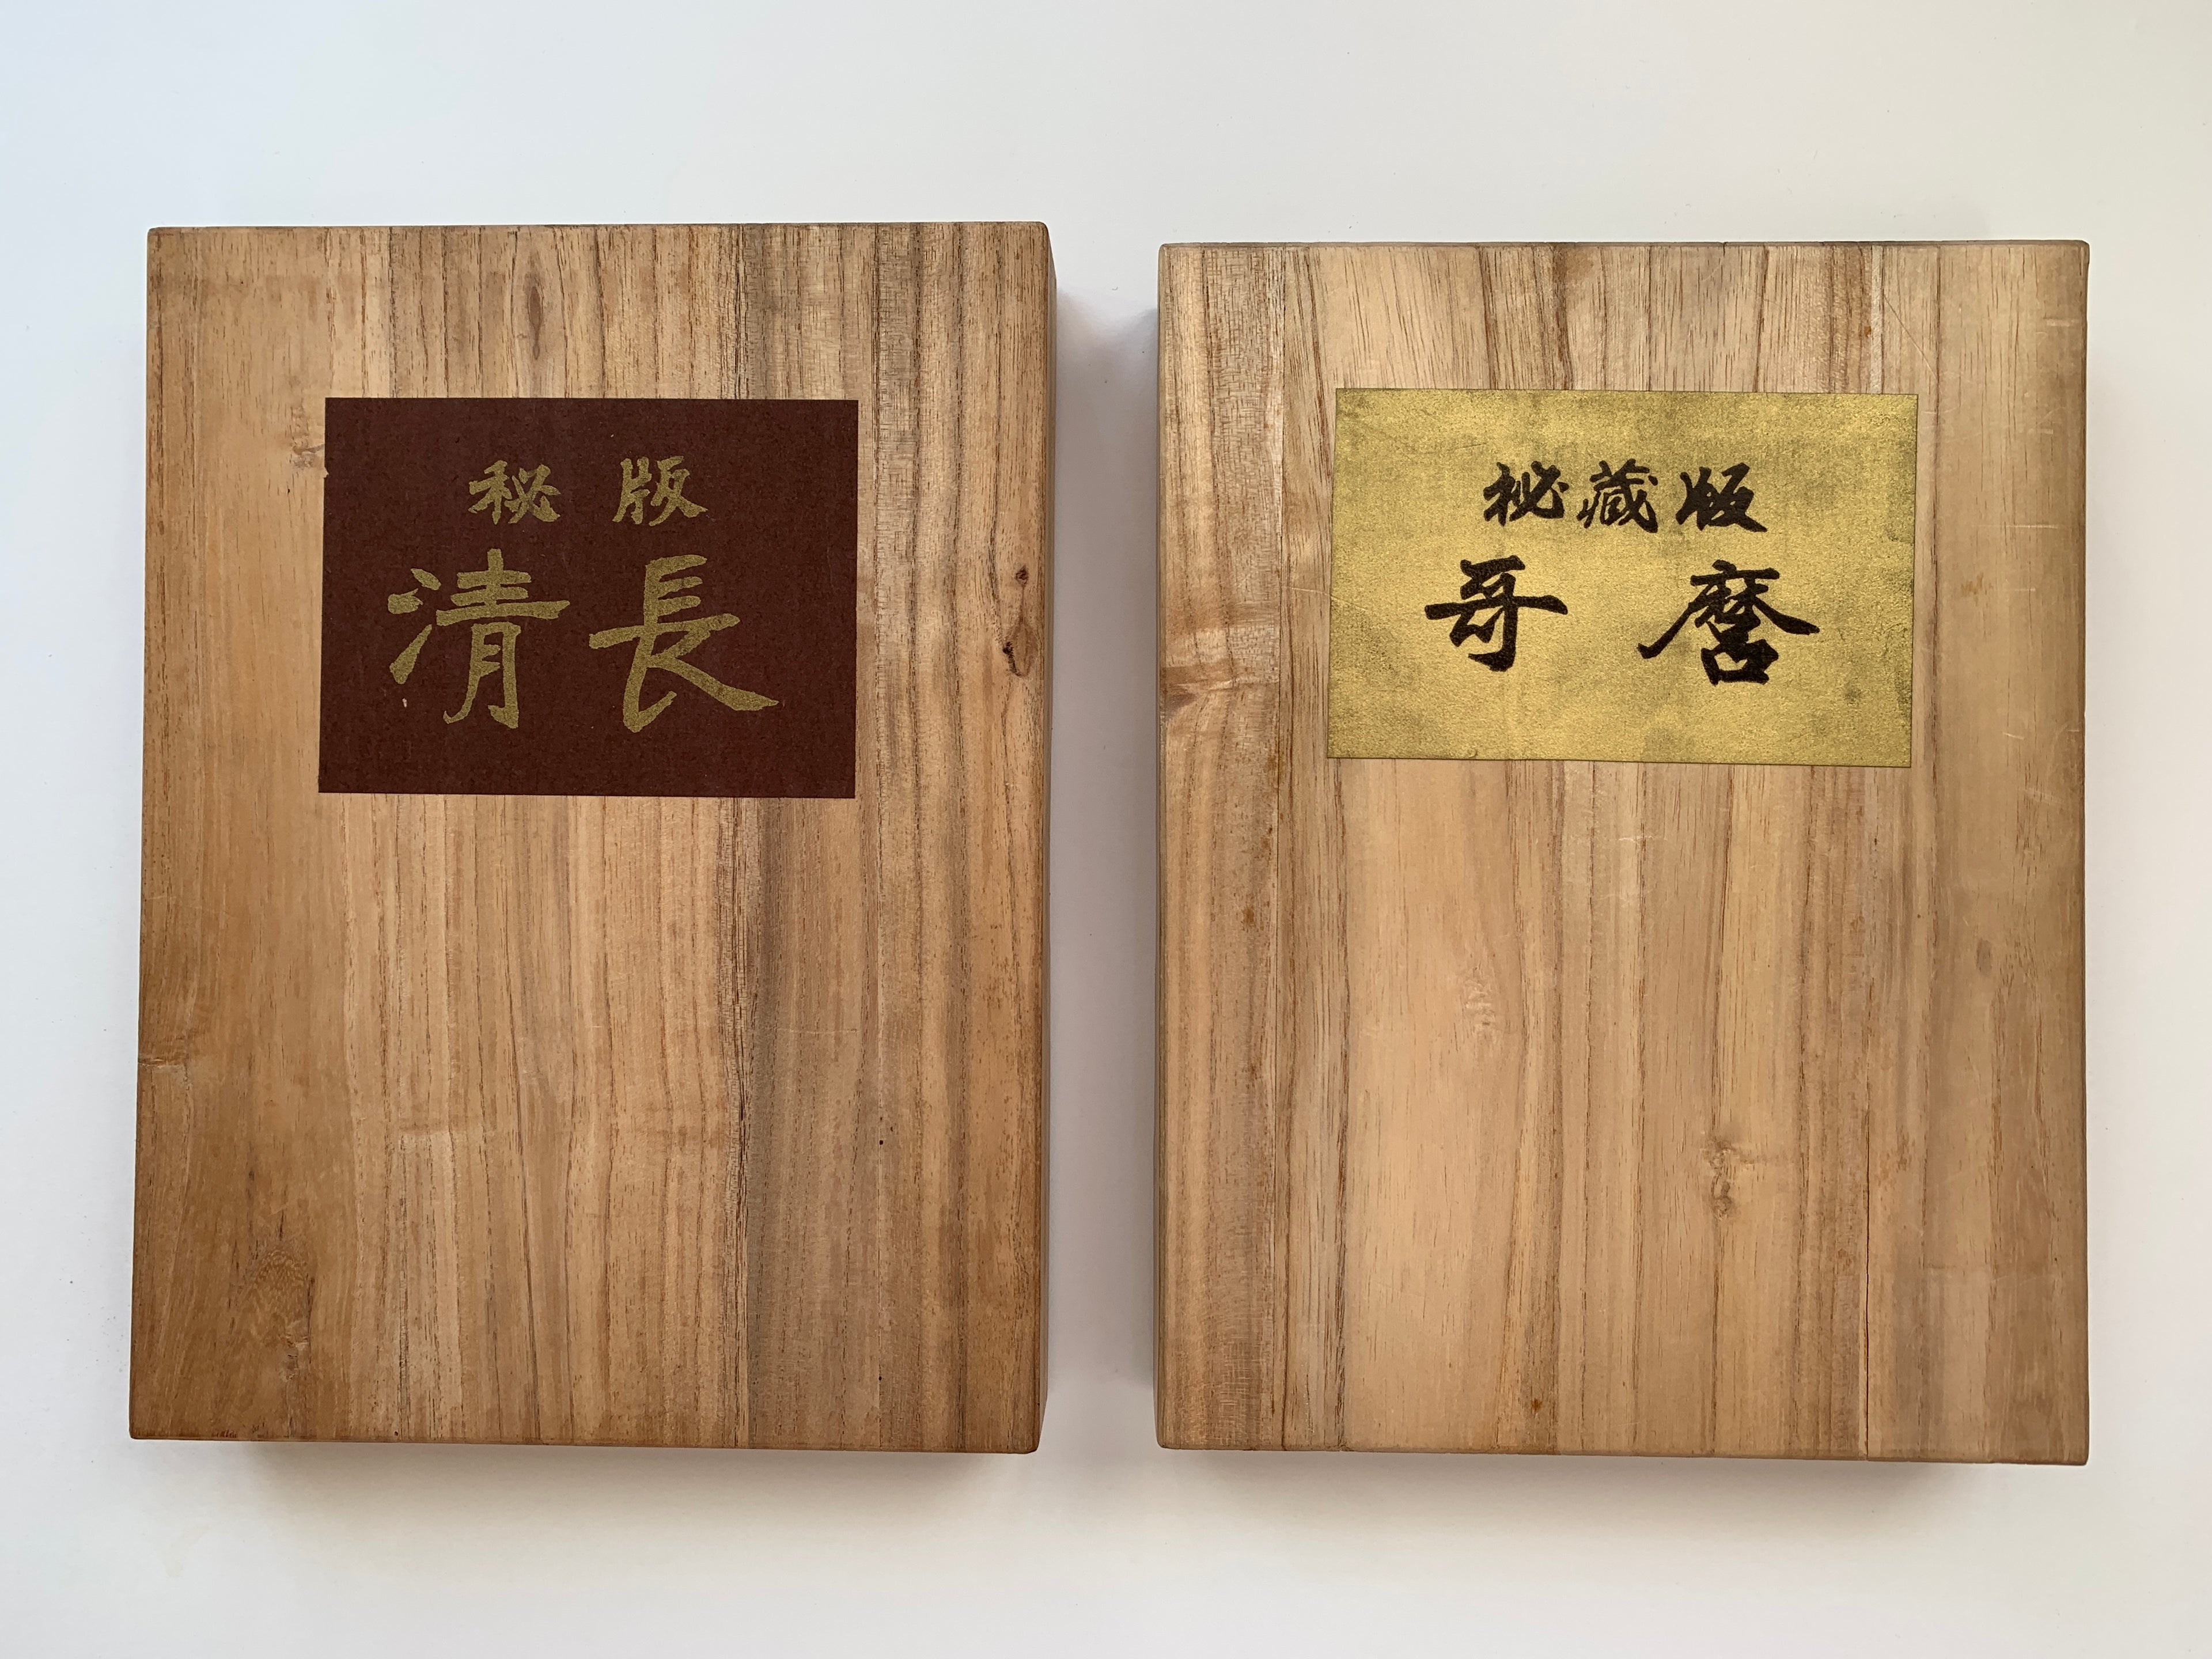 秘版
清長
秘蔵版
哥麿